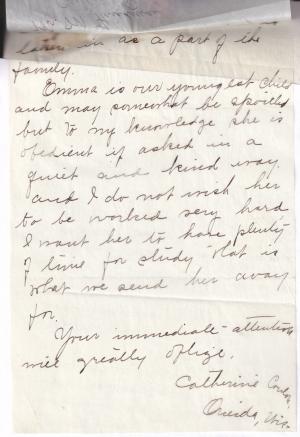 as a part of the
family.
Emma is our youngest child
and may somewhat be spoiled
but to my knowledge she is
obedient if asked in a
quiet and kind way.
and I do not wish her
to be worked very hard
I want her to have plenty
of time for study that is
what we send her away
for.
Your immediate attention
will greatly oblige.
Catherine
Oneida, Wis.